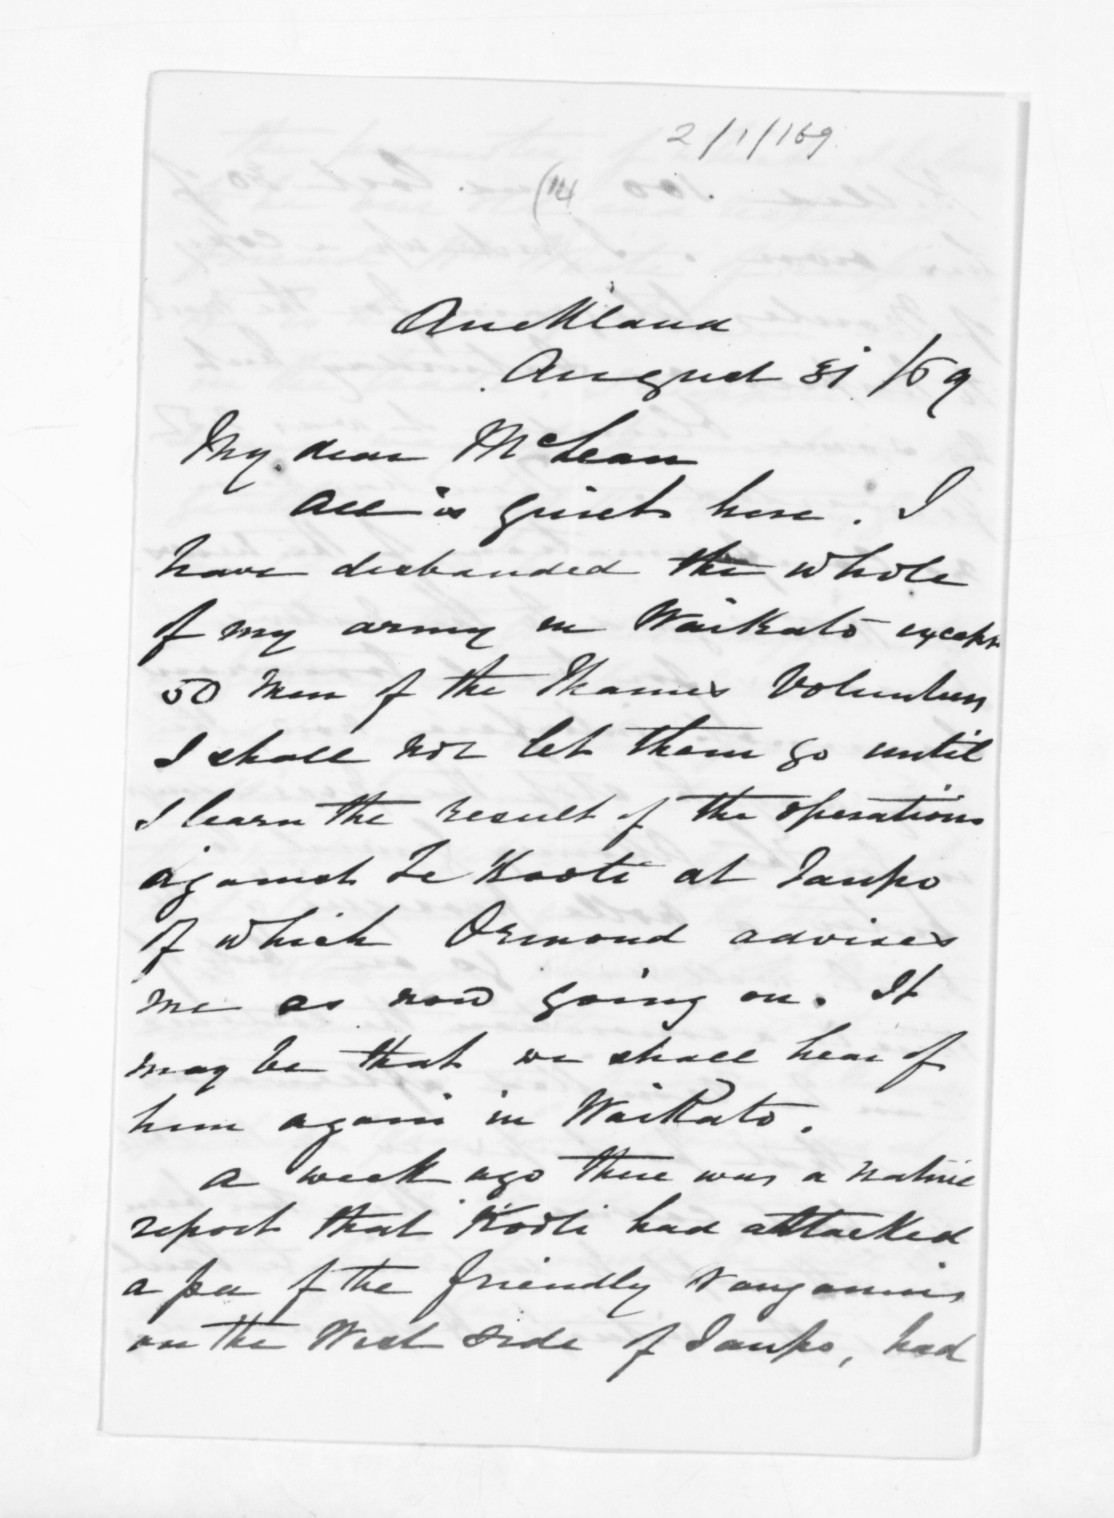 2/1/169
Auckland
August 31 /69
My dear McLean
All is quiet here. I
have disbanded the whole
of my army in Waikato except
50 men of the Thames Volunteers
I shall not let them go until
I learn the result of the operations
against Te Kooti at Taupo
of which Ormond advises
me as now going on. It
may be that we shall hear of
him again in Waikato.
A week ago there was a native
report that Kooti had attacked
a pa of the friendly
on the West side of Taupo, had